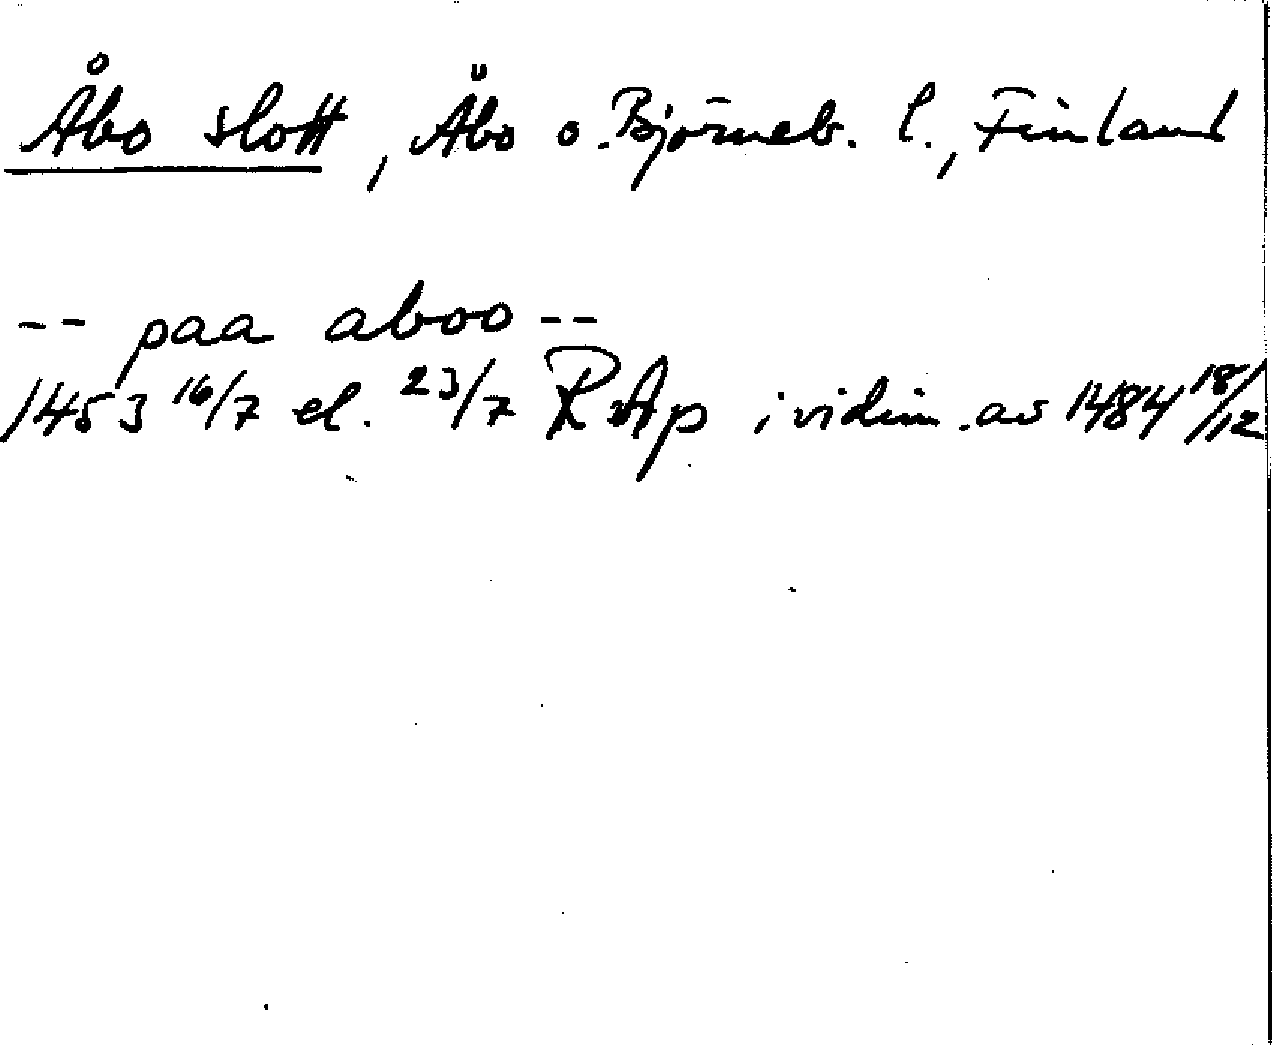 Åbo slott, Åbo o. Björneb. l., Finland
-- paa aboo --
1453 16/7 el. 23/7 RAp i vidim. av 1484 18/12